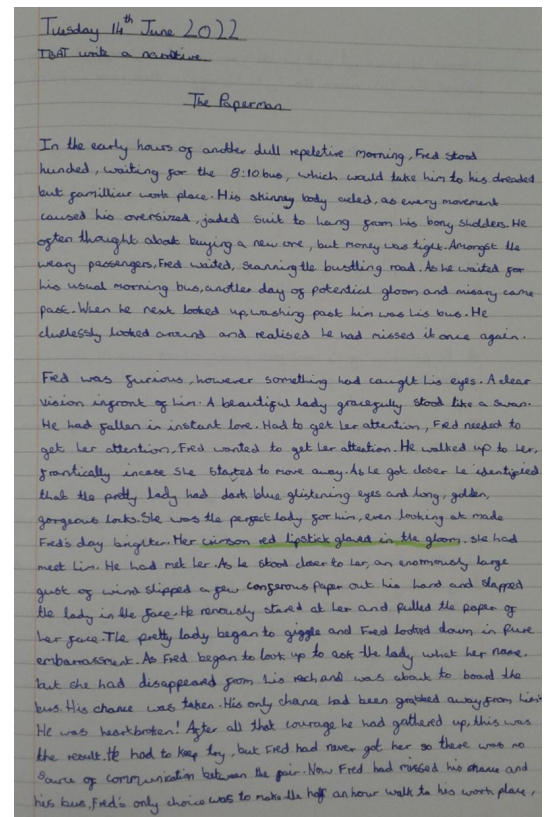 Tuesday 14th June 2022
TBAT write a narrative
The Paperman
In the early hours of another dull repeletive morning, Fred stood
hunded, waiting for the 8:10 bus, which would take him to his dreaded
but familliar work place. His skinney body acled, as every movement
caused his oversized, jaded suit to hang from his bony sholders. He
often thought about buying a new one, but money was tight. Amongst the
weary passengers, Fred waited, scanning the bustling road. As he waited for
his usual morning bus, another day of potential gloom and misary came
past. When he next looked up, washing past him was his bus. He
cluelessly looked around and realised he had missed it once again.
Fred was furious, however something had caught his eyes. A clear
vision infront of him. A beautiful lady gracefully stood like a swan.
He had fallen in instant love. Had to get her attention, Fred needed to
get her attention, Fred wanted to get her attention. He walked up to her,
frantically incase she started to move away. As he got closer he identified
that the pretty lady had dark blue glistening eyes and long, golden,
gorgeous locks. She was the perfect lady for him, even looking at made
Fred's day brighter. Her crimson red lipstick glared in the gloom. she had
meet him. He had met her. As he stood closer to her, an enormously large
gust of wind slipped a few congerous paper out his hand and slapped
the lady in the face. He renously stared at her and pulled the paper of
her face. The pretty lady began to giggle and Fred looked down in pure
embarrassment. As Fred began to look up to ask the lady what her name.
but she had disappeared from his rech and was about to board the
bus. His chance was taken. His only chance had been grabbed away from him.
He was heartbroken! After all that courage he had gathered up, this was
the result. He had to keep try, but Fred had never got her so there was no
source of communication between the pair. Now Fred had missed his chance and
his bus, Fred's only choice was to make the half an hour walk to his work place,